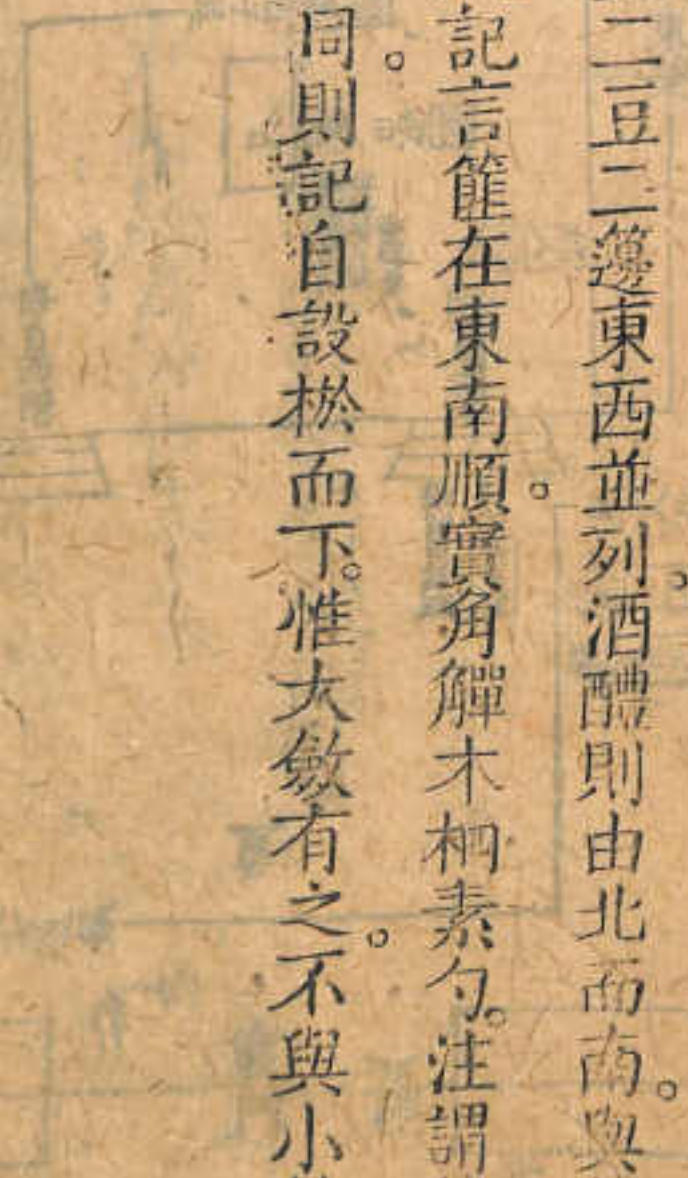 二豆二籩東西並列。酒醴則由北而南。與
記言篚在東南順。實角觶木柶素勺。注謂
同。則記自設棜而下。惟大斂有之。不與小